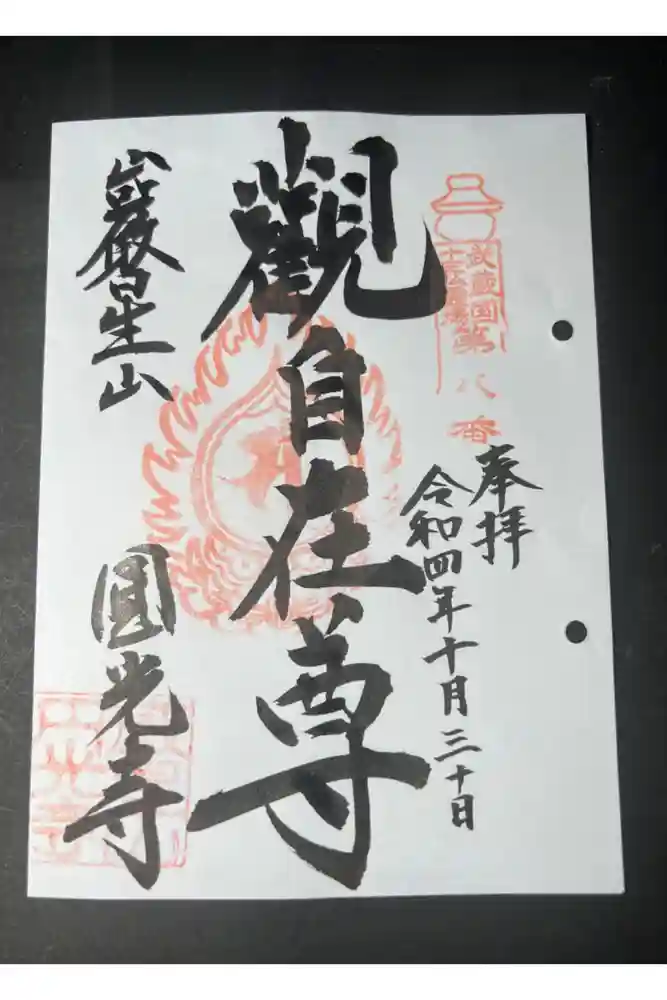 武蔵国
十三仏霊場
第八番
奉拝
令和四年十月三十日
觀自在尊
巌生山
圓光寺